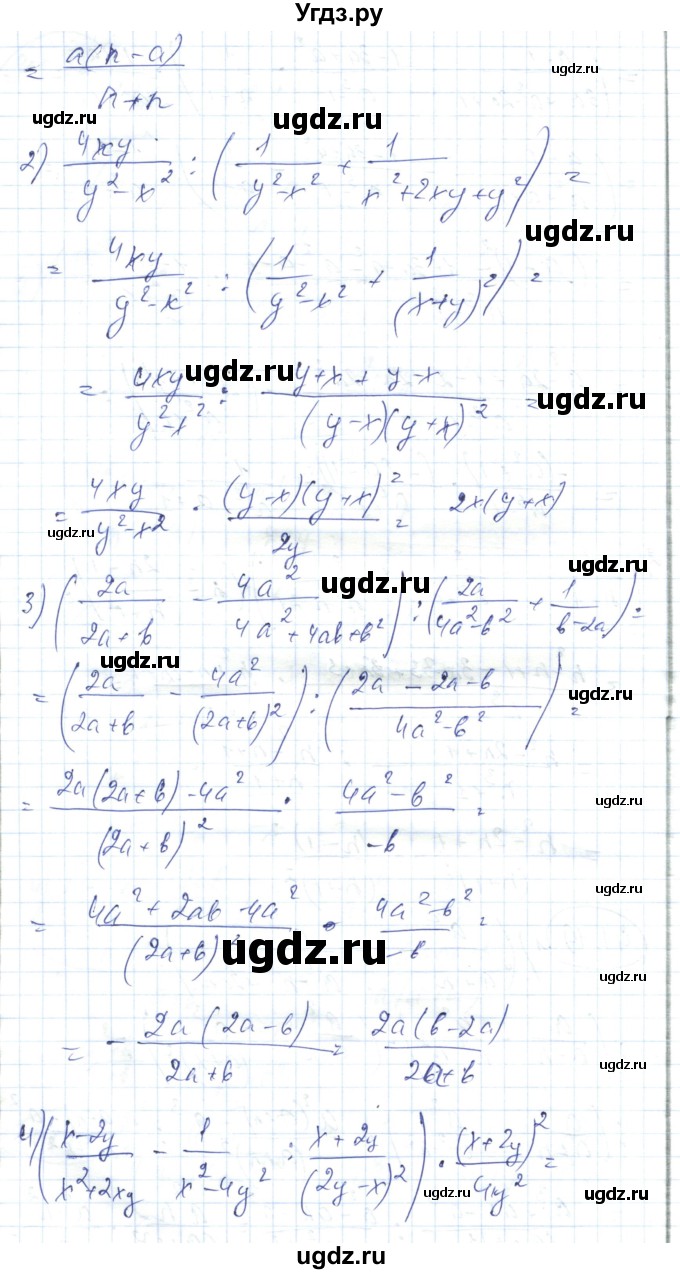 Угдз.ру
= a(n-a) / n+n
ugdz.ru ugdz.ru ugdz.ru
2) 4xy / y²-x² : (1 / y²-x² + 1 / x²+2xy+y²) =
ugdz.ru
= 4xy / y²-x² : (1 / y²-x² + 1 / (x+y)²) =
ugdz.ru ugdz.ru
= 4xy / y²-x² : y+x+y-x / (y-x)(y+x)² =
= 4xy / y²-x² · (y-x)(y+x)² / 2y = 2x(y+x)
ugdz.ru ugdz.ru ugdz.ru
3) (2a / 2a+b - 4a² / 4a²+4ab+b²) : (2a / 4a²-b² + 1 / b-2a) =
ugdz.ru
= (2a / 2a+b - 4a² / (2a+b)²) : (2a-2a-b / 4a²-b²) =
ugdz.ru
= 2a(2a+b)-4a² / (2a+b)² · 4a²-b² / -b =
ugdz.ru
= 4a²+2ab-4a² / (2a+b)² · 4a²-b² / -b =
ugdz.ru ugdz.ru
= - 2a(2a-b) / 2a+b = 2a(b-2a) / 2a+b
ugdz.ru
4) (x-2y / x²+2xy - 1 / x²-4y² : x+2y / (2y-x)²) · (x+2y)² / 4y² =
ugdz.ru ugdz.ru
ugdz.ru